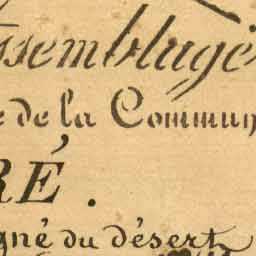 ssemblagé
e de la Commun
RÉ.
gné du désert